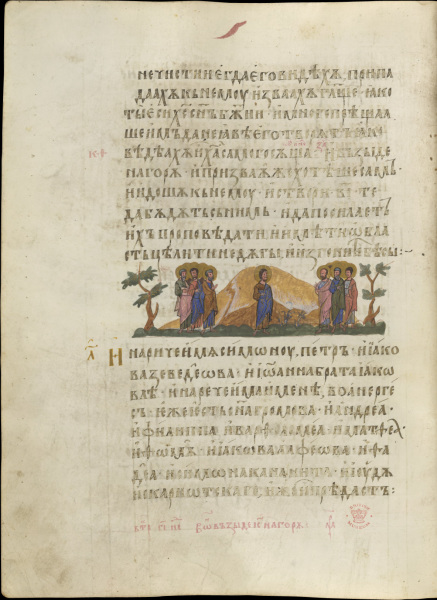 нечистїи егда его видѣхѫ, припа
даахѫ къ немоу и зваахѫ глщ͠е ꙗко
ты еси хс͠ сн͠ъ бж͠ии и много прѣщаа
ше имъ да не ꙗвѣ его творѧтъ ꙗко
вѣдѣахѫ и х͠а самого сѫща и възыде
на горѫ и призва ѧже хотѣше самъ
и идошѧ къ немоу и створи в͠і те
да бѫдѫть съ нимь и да посилаеть
ихъ проповѣдати и имѣти ѡбла
сть цѣлити недѫгы и изгонити бѣсы:
И нарече имѧ симѡноу петръ и іако
ва зеведеѡва и іѡанна брата іакѡ
влѣ и нарече има имене воанерге
съ еже есть сн͠а громова и андреа
и филиппа и варфоломеа и матѳеа
и ѳѡмѫ и іакѡва алфеѡва и фа
деа и симѡна кананита и іоудѫ
искариѡтскаго иже и прѣдасть: